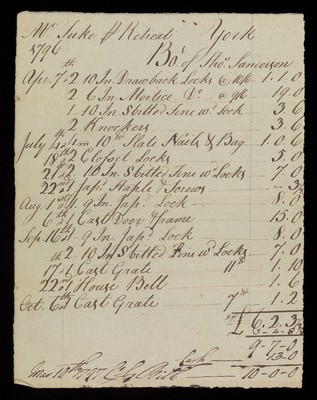 Mr Tuke pr Retreat York
1796 Bot of Thos Sanderson
Apr. 7th 2 10 In. Drawback Locks 1.1.0
2 6 In Mortice Do 19.0
1 10 In S bitted Fine wd Lock 3.6
2 Knockers 3.6
July 4th 10m Slate Nails & Bag 1.0.6
18th 2 Closset Locks 5.0
21st 2 10 In S bitted Fine wd Locks 7.0
22nd 1 Japd Staple & Screws 3½
Aug. 1st 1 9 In Japd Lock 8.0
6th 1 Cast Door & frame 15.0
Sep. 16th 1 9 In Japd Lock 8.0
th 2 10 In S bitted Fine wd Locks 7.0
17 1 Cast Grate 11lb 1.10
22nd 1 House Bell 1.6
Oct. 6th 1 Cast Grate 7lb 1.2
£ 6.2.3½
9-7-0
Cash 13-0
10th 1797 10-0-0